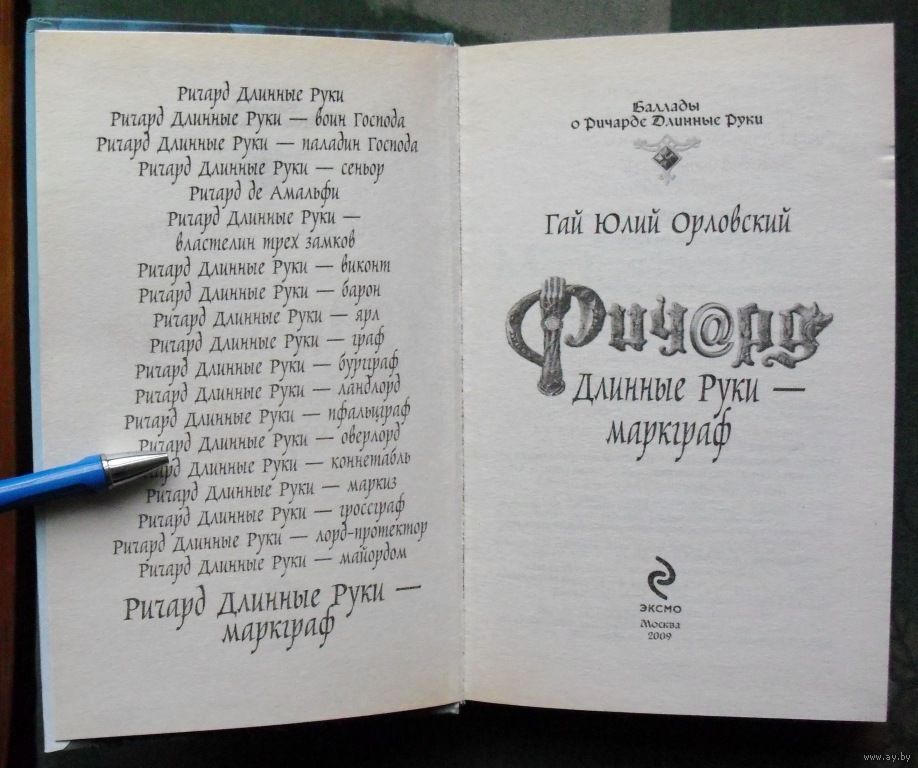 Ричард Длинные Руки
Ричард Длинные Руки — воин Господа
Ричард Длинные Руки — паладин Господа
Ричард Длинные Руки — сеньор
Ричард де Амальфи
Ричард Длинные Руки —
властелин трех замков
Ричард Длинные Руки — виконт
Ричард Длинные Руки — барон
Ричард Длинные Руки — ярл
Ричард Длинные Руки — граф
Ричард Длинные Руки — бургграф
Ричард Длинные Руки — ландлорд
Ричард Длинные Руки — пфальцграф
Ричард Длинные Руки — оверлорд
Длинные Руки — коннетабль
Ричард Длинные Руки — маркиз
Ричард Длинные Руки — гроссграф
Ричард Длинные Руки — лорд-протектор
Ричард Длинные Руки — майордом
Ричард Длинные Руки —
маркграф
Баллады
о Ричарде Длинные Руки
Гай Юлий Орловский
Рич@рд
Длинные Руки —
маркграф
ЭКСМО
Москва
2009
www.ay.by